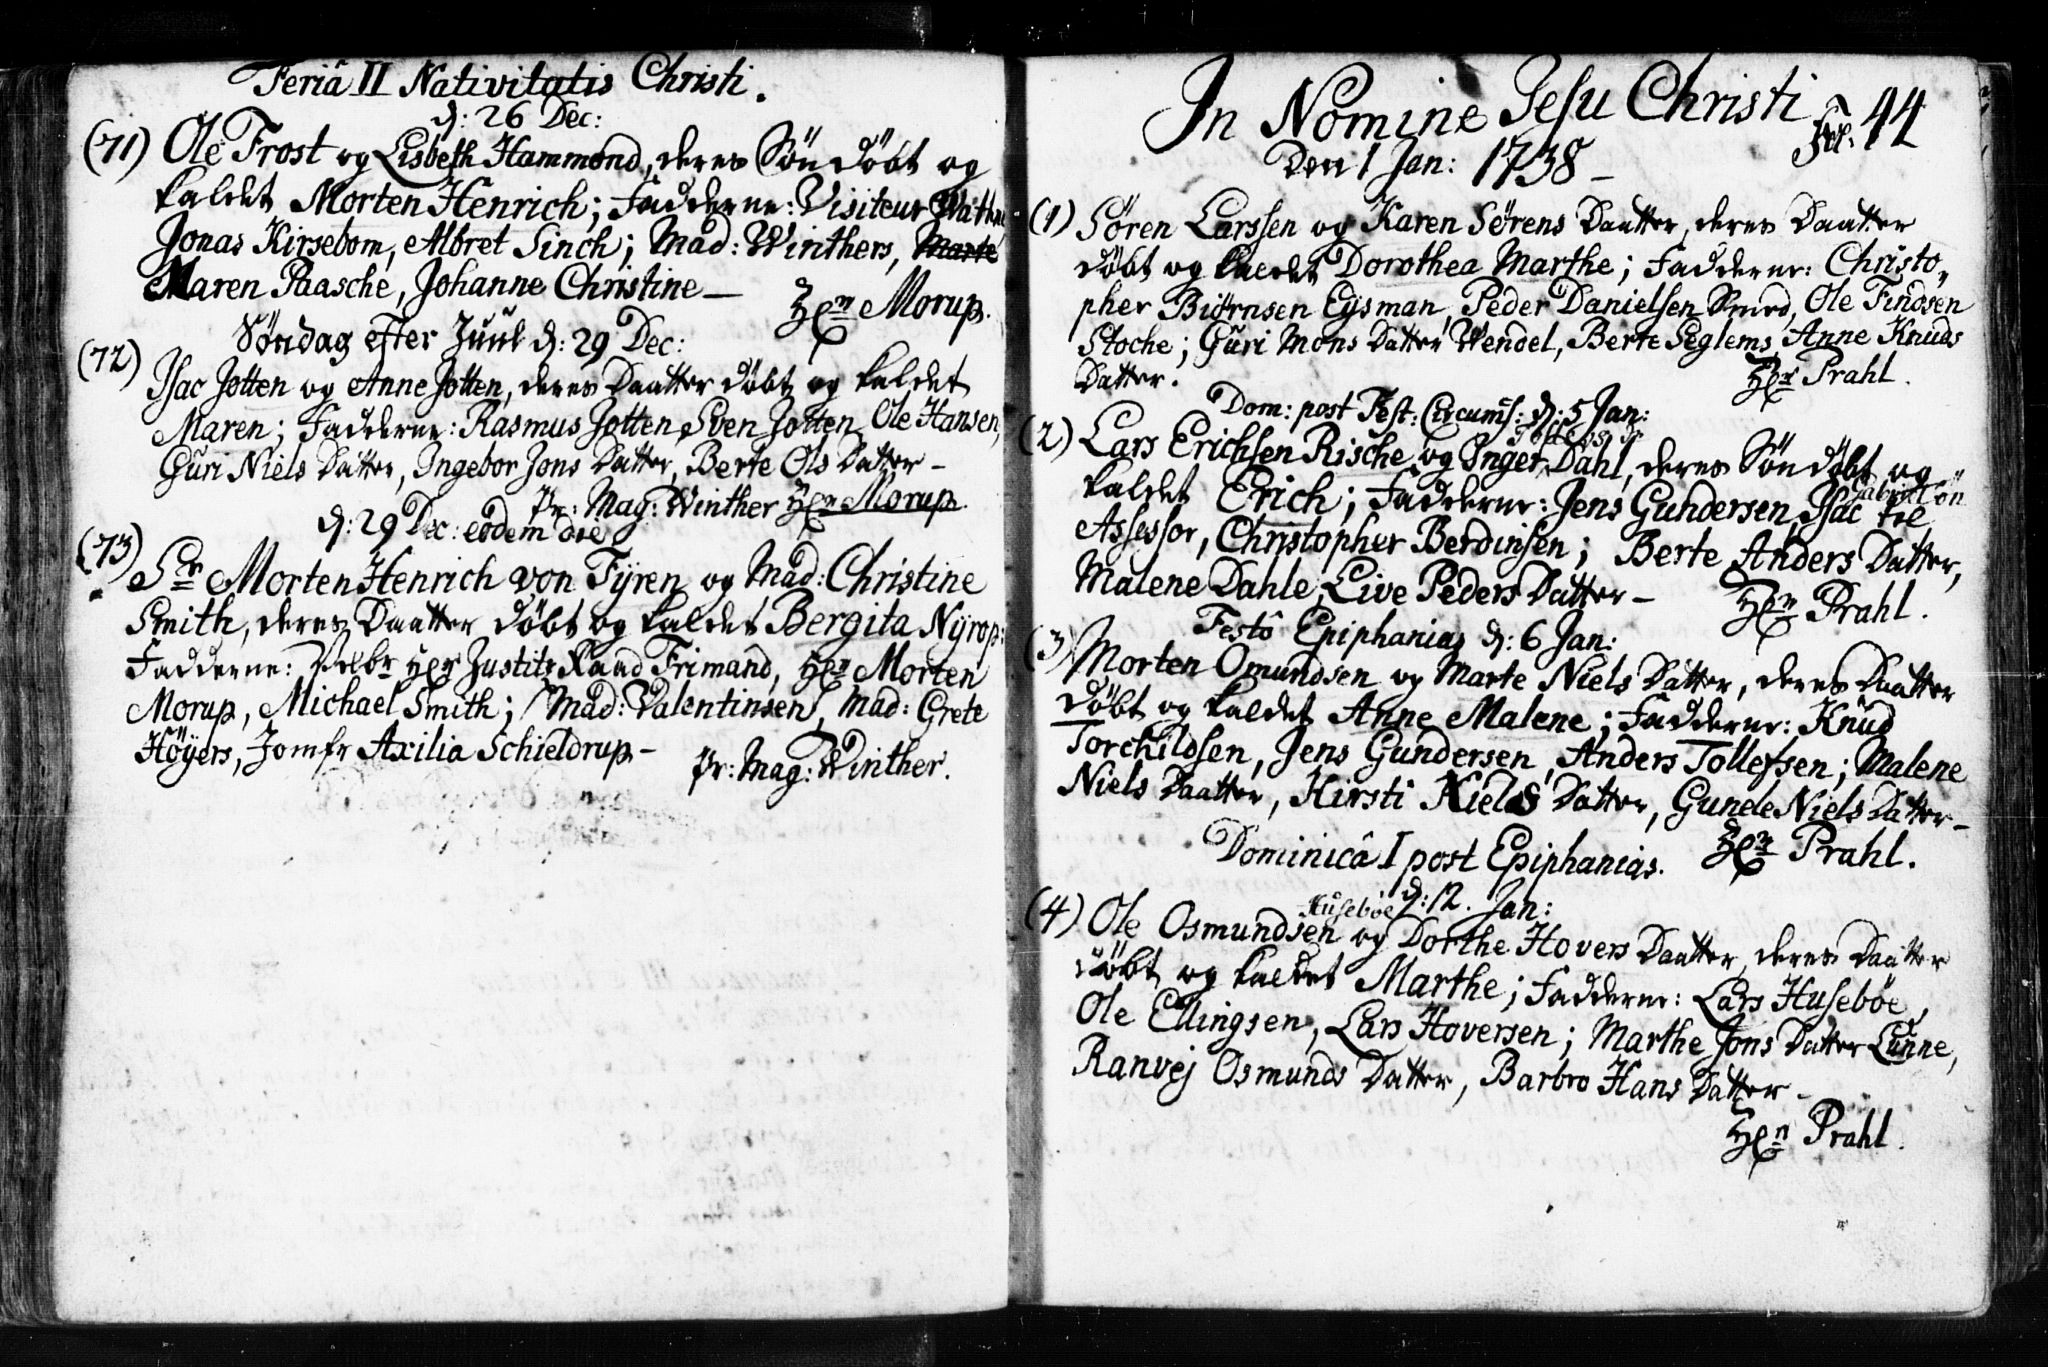 Feriâ II Nativitatis Christi.
d: 26 Dec:
(71) Ole Frost og Lisbeth Hammond, deres Sön döbt og
kaldet Morten Henrich; Fadderne: Visiteur
Jonas Kirsebom, Albret Sinch; Mad: Winthers, Marte
Maren Paasche, Johanne Christine —
Hr Morup.
Söndag efter Juul d: 29 Dec:
(72) Isac Jøtten og Anne Jøtten, deres Daatter döbt og kaldet
Maren; Fadderne: Rasmus Jøtten, Sven Jøtten, Ole Hansen,
Guri Niels Datter, Ingebor Jons Datter, Berte Ols Datter —
Pr: Mag: Winther Hr Morup.
d: 29 Dec: eodem die
(73) Sr Morten Henrich von Fyren og Mad: Christine
Smith, deres Daatter döbt og kaldet Bergita Nyrop:
Fadderne: Hr Justitz Raad Frimand, Hr Morten
Morup, Michael Smith; Mad: Valentinsen, Mad: Grete
Höyers, Jomfr Axilia Schieldrup —
Pr: Mag: Winther.
In Nomine Jesu Christi
Fol: 44
Den 1 Jan: 1738 —
(1) Sören Larssen og Karen Sørens Daatter, deres Daatter
döbt og kaldet Dorothea Marthe; Fadderne: Christo,,
pher Biørnsen Eysman, Peder Danielsen Smed, Ole Findsen
Stoche; Guri Mons Datter Wendel, Berte Seglems, Anne Knuds
Datter.
Hr Prahl.
Dom: post Fest: Circumis: d: 5 Jan:
(2) Lars Erichsen Rische og Inger Dahl, deres Sön döbt og
kaldet Erich; Fadderne: Jens Gundersen, Isac til
Assessor, Christopher Berdinsen; Berte Anders Datter,
Malene Dahle, Live Peders Datter —
Hr Prahl.
Festô Epiphanias d: 6 Jan:
(3) Morten Omundsen og Marte Niels Datter, deres Daatter
döbt og kaldet Anne Malene; Fadderne: Knud
Torchildsen, Jens Gundersen, Anders Tollefsen; Malene
Niels Daatter, Kirsti Kiels Datter, Gunele Niels Datter —
Hr Prahl.
Dominicâ I post Epiphanias.
d: 12. Jan:
Husebøe
(4) Ole Osmundsen og Dorthe Hovers Daatter, deres Daatter
döbt og kaldet Marthe; Fadderne: Lars Huseböe,
Ole Ellingsen, Lars Hoversen; Marthe Jons Datter Lunne,
Ranvej Osmunds Datter, Barbro Hans Datter —
Hr Prahl.